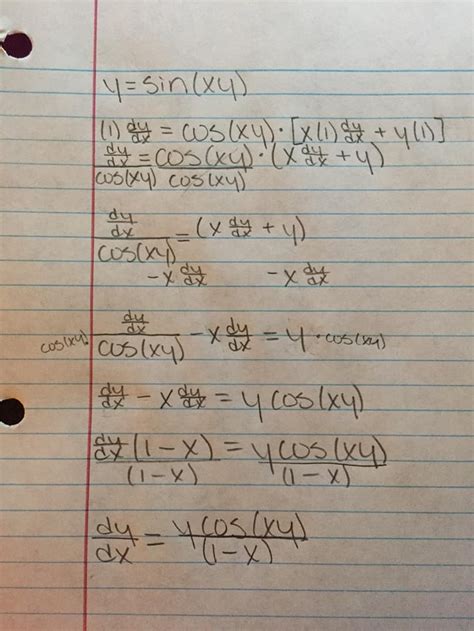 y = sin(xy)
(1) dy/dx = cos(xy) · [x(1) dy/dx + y(1)]
dy/dx = cos(xy) · (x dy/dx + y)
cos(xy) cos(xy)
dy/dx / cos(xy) = (x dy/dx + y)
-x dy/dx -x dy/dx
cos(xy) dy/dx / cos(xy) - x dy/dx = y · cos(xy)
dy/dx - x dy/dx = y cos(xy)
dy/dx (1-x) / (1-x) = y cos(xy) / (1-x)
dy/dx = y cos(xy) / (1-x)